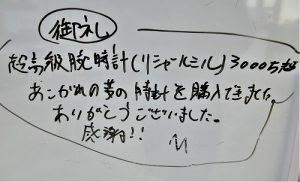 御礼
超高級腕時計(リシャールミル)3000万超
あこがれの夢の時計を購入できました。
ありがとうございました。
感謝!!